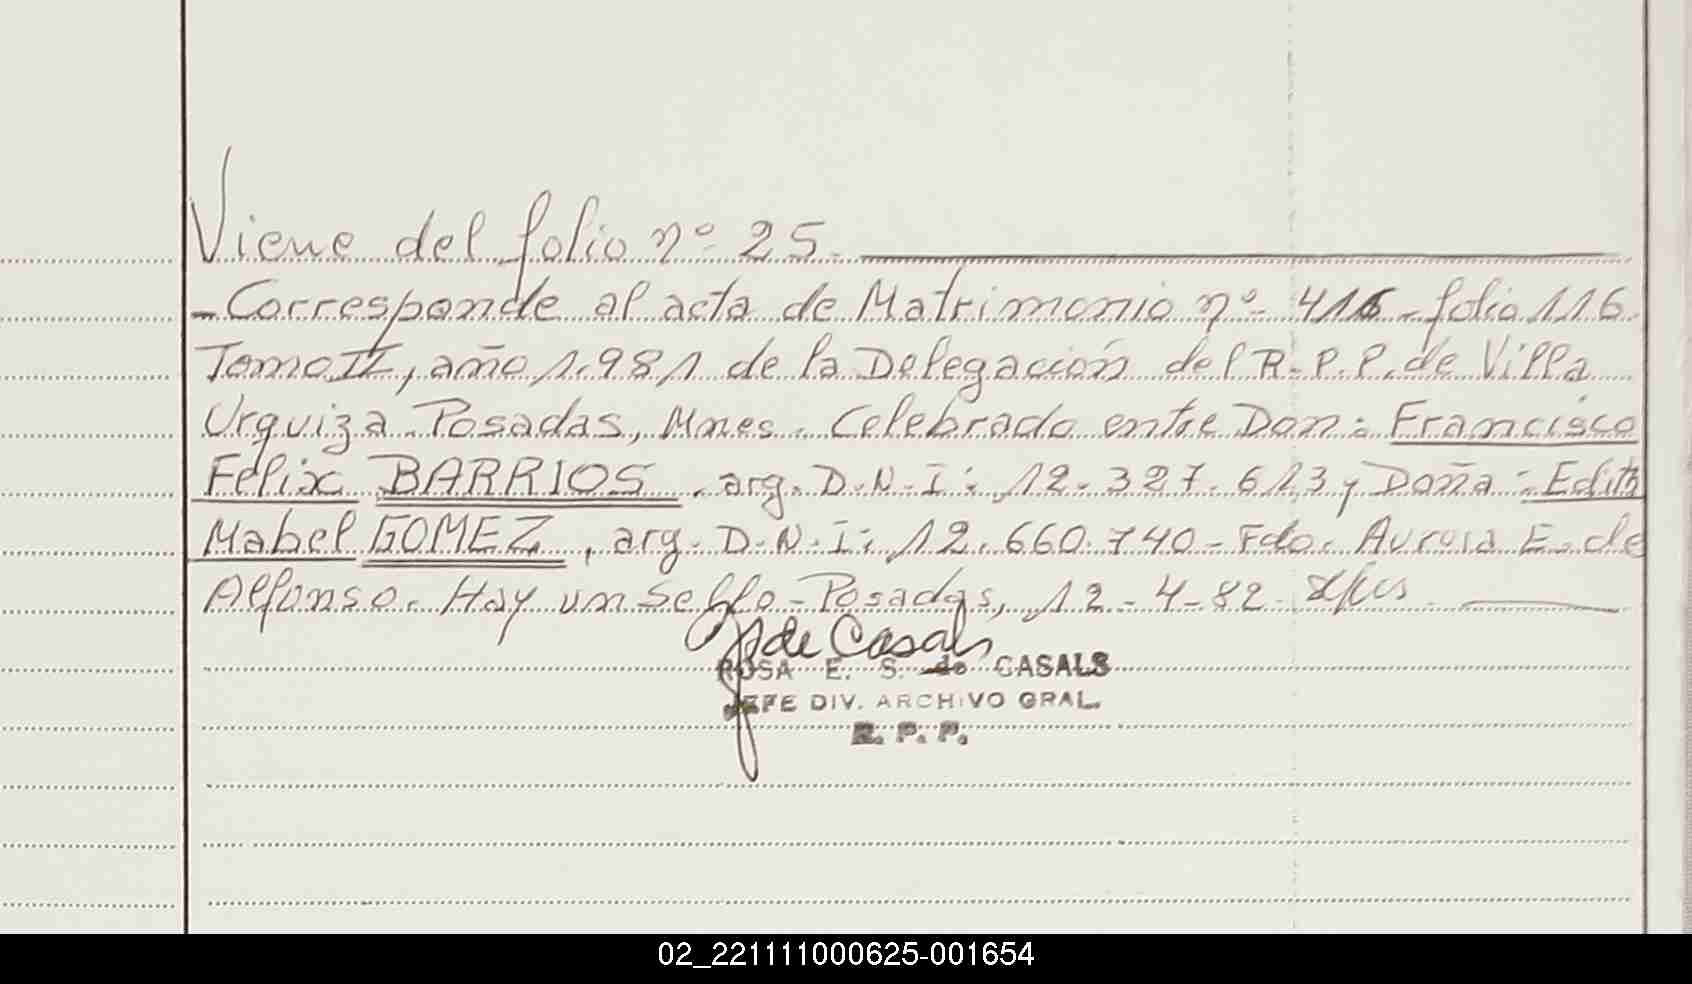 Viene del folio nº 25.
- Corresponde al acta de Matrimonio nº 416 - folio 116
Tomo II, año 1.981 de la Delegación del R.P.P. de Villa
Urquiza - Posadas, Mnes. Celebrado entre Don: Francisco
Felix BARRIOS, arg. D.N.I: 12.327.613 y Doña: Edith
Mabel GOMEZ, arg. D.N.I: 12.660.740 - Fdo. Aurora E. de
Alfonso. Hay un sello - Posadas, 12-4-82.
de Casals
ROSA E. S. de CASALS
JEFE DIV. ARCHIVO GRAL.
R. P. P.
02_221111000625-001654